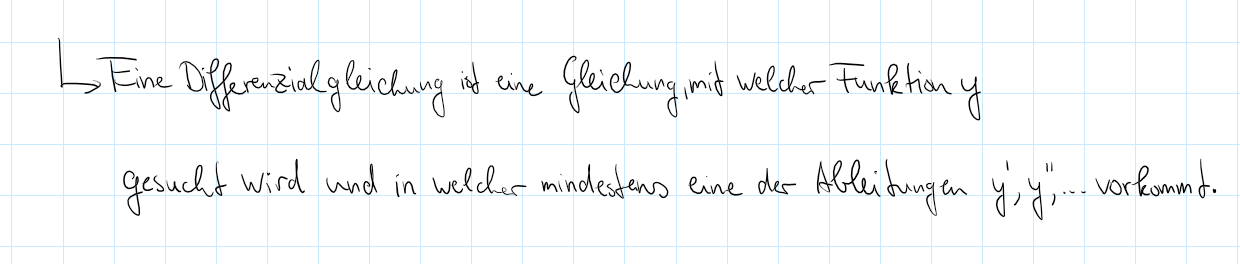 ↳ Eine Differenzialgleichung ist eine Gleichung, mit welcher Funktion y
gesucht wird und in welcher mindestens eine der Ableitungen y', y'', ... vorkommt.